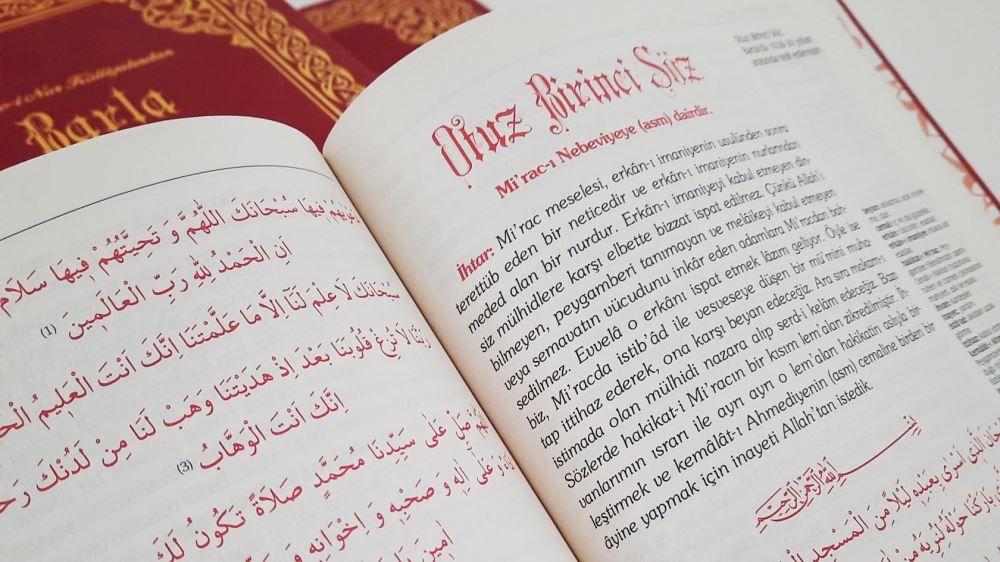 Nur Külliyatından
Barla
فِيهَا سُبْحَانَكَ اللّٰهُمَّ وَ تَحِيَّتُهُمْ فِيهَا سَلَامٌ
اَنِ الْحَمْدُ لِلّٰهِ رَبِّ الْعَالَمِينَ (1)
سُبْحَانَكَ لَا عِلْمَ لَنَا اِلَّا مَا عَلَّمْتَنَا اِنَّكَ اَنْتَ الْعَلِيمُ
رَبَّنَا لَا تُزِغْ قُلُوبَنَا بَعْدَ اِذْ هَدَيْتَنَا وَهَبْ لَنَا مِنْ لَدُنْكَ
اِنَّكَ اَنْتَ الْوَهَّابُ (3)
صَلِّ عَلَى سَيِّدِنَا مُحَمَّدٍ صَلَاةً تَكُونُ لَكَ
وَ عَلَى اٰلِهِ وَ صَحْبِهِ وَ اِخْوَانِهِ وَ
اٰمِينَ
Otuz Birinci Söz
Mi'rac-ı Nebeviyeye (asm) dairdir.
İhtar: Mi'rac meselesi, erkân-ı imaniyenin usulünden sonra
terettüb eden bir neticedir ve erkân-ı imaniyenin nurlarından
meded alan bir nurdur. Erkân-ı imaniyeyi kabul etmeyen din-
siz mülhidlere karşı elbette bizzat ispat edilmez. Çünkü Allah'ı
bilmeyen, peygamberi tanımayan ve melâikeyi kabul etmeyen
veya semavatın vücudunu inkâr eden adamlara Mi'racdan bah-
sedilmez. Evvelâ o erkânı ispat etmek lâzım geliyor. Öyle ise
biz, Mi'racda istib'âd ile vesveseye düşen bir mü'mini muha-
tap ittihaz ederek, ona karşı beyan edeceğiz. Ara sıra makam-ı
istimada olan mülhidi nazara alıp serd-i kelâm edeceğiz. Bazı
Sözlerde hakikat-i Mi'racın bir kısım lem'aları zikredilmiştir. İh-
vanlarımın ısrarı ile ayrı ayrı o lem'aları hakikatin aslıyla bir-
leştirmek ve kemâlât-ı Ahmediyenin (asm) cemaline birden bir
âyine yapmak için inayeti Allah'tan istedik.
بِسْمِ اللّٰهِ الرَّحْمٰنِ الرَّحِيمِ
الَّذِى اَسْرٰى بِعَبْدِهِ لَيْلًا مِنَ الْمَسْجِدِ
بَارَكْنَا حَوْلَهُ لِنُرِيَهُ مِنْ
Otuz Birinci Söz,